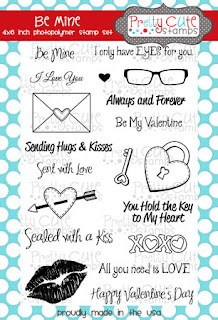 Be Mine
4x6 inch photopolymer stamp set
Pretty Cute
Stamps
Be Mine
I only have EYES for you.
I Love You
Always and Forever
Be My Valentine
Sending Hugs & Kisses
Sent with Love
You Hold the Key
to My Heart
Sealed with a Kiss
XOXO
All you need is LOVE
Happy Valentine's Day
proudly made in the usa